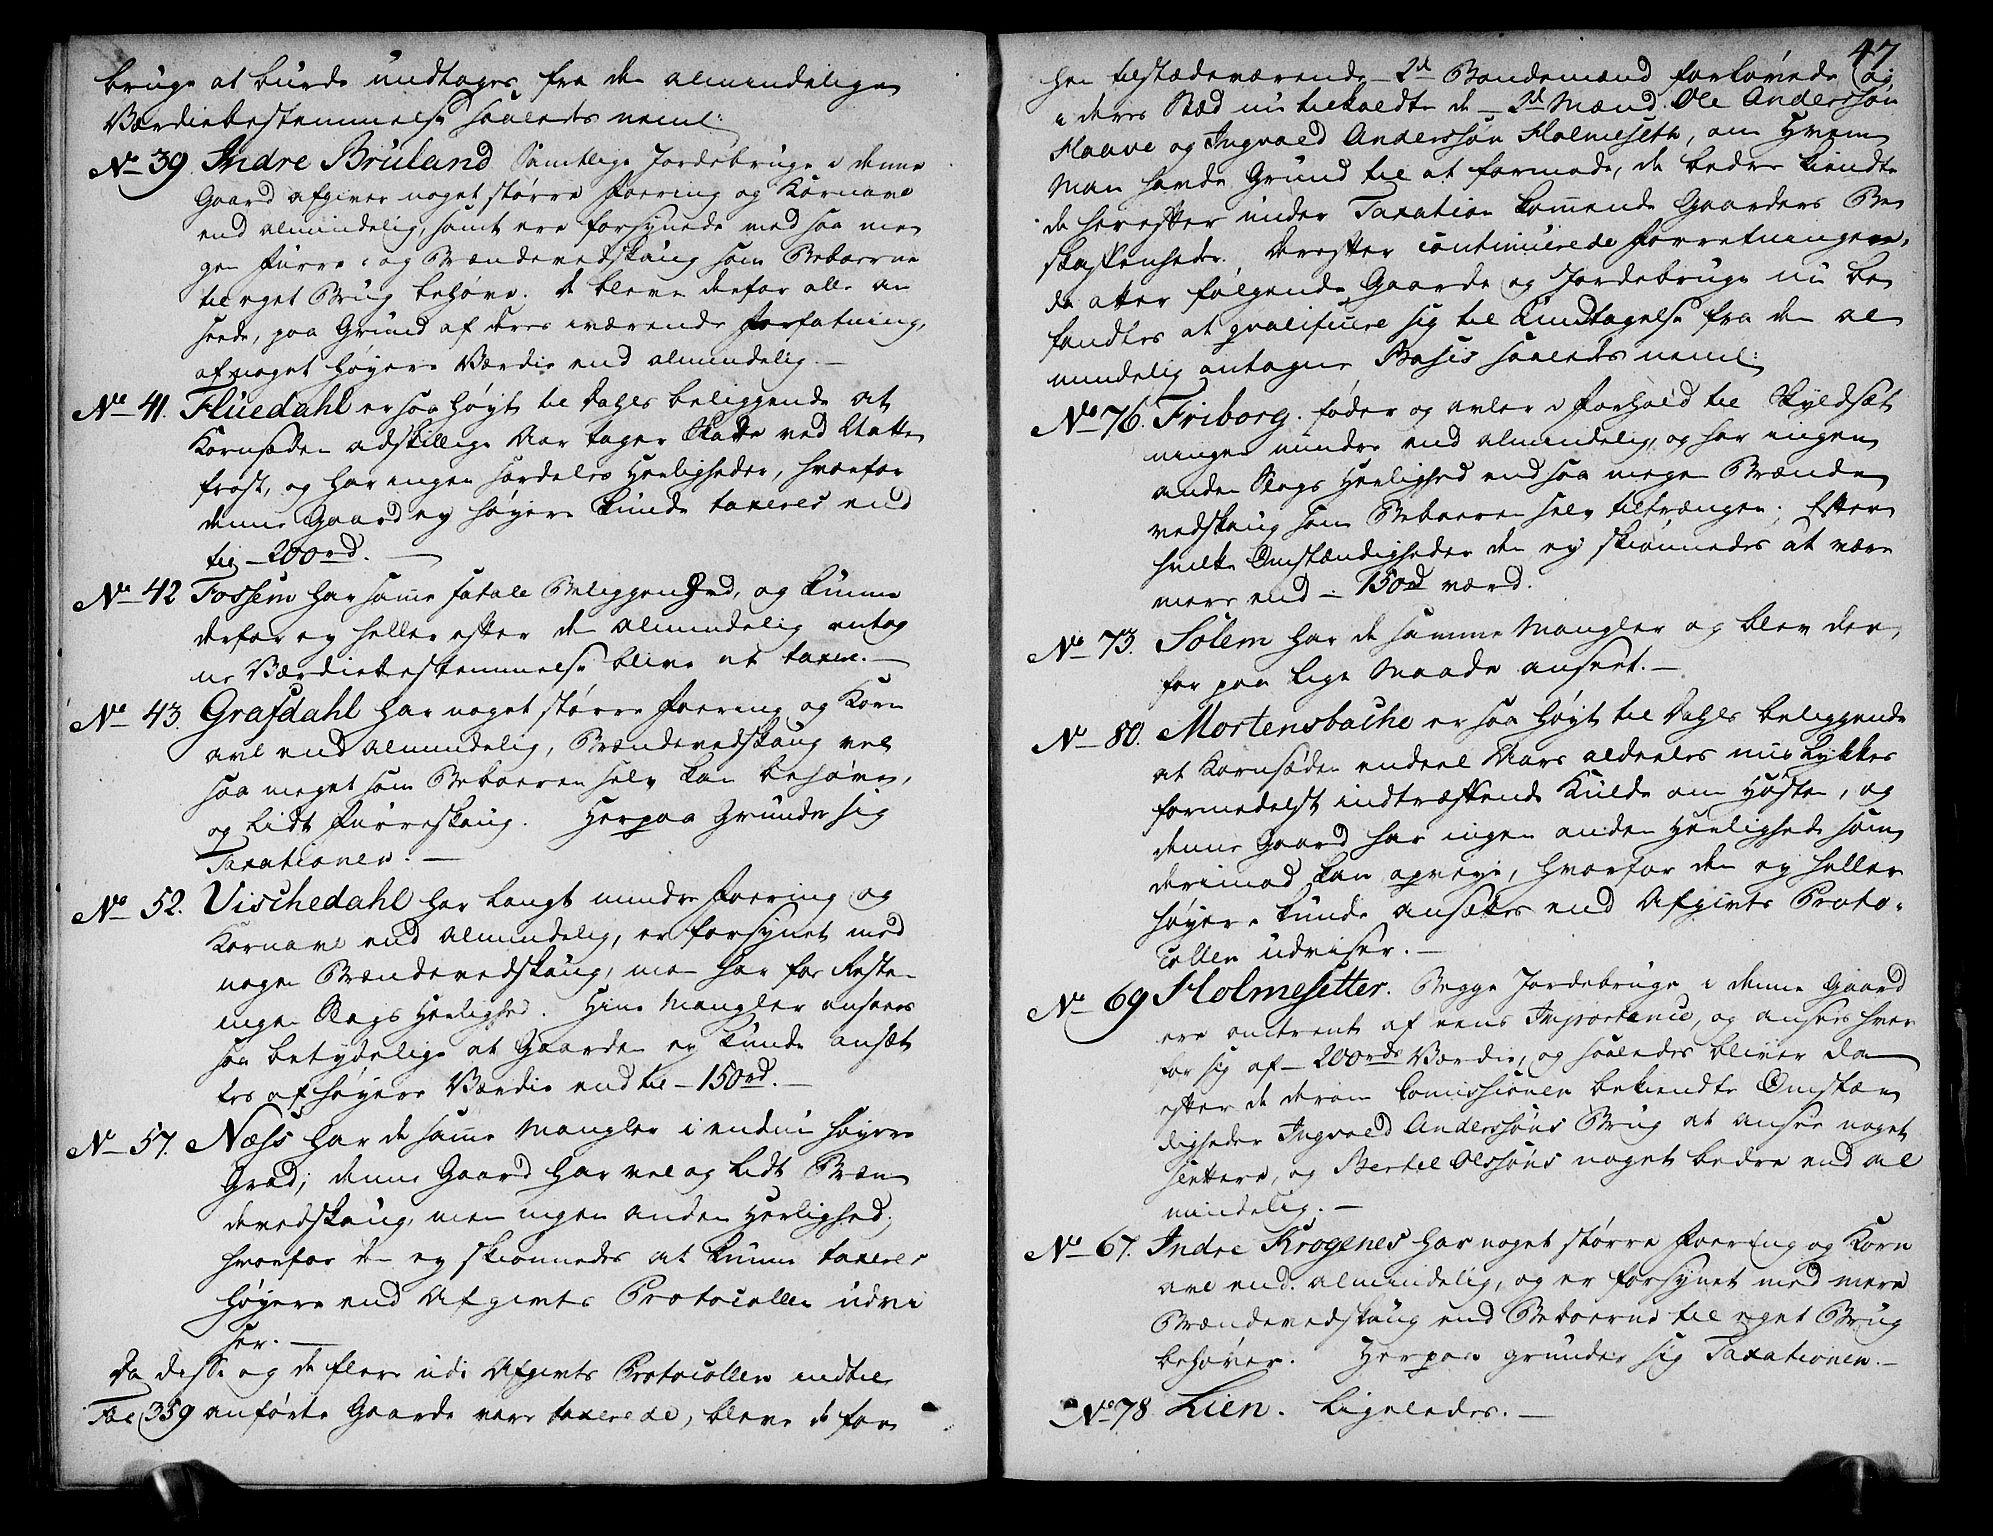 bruge at burde undtages fra den almindelige
Værdiebestemmelse saaledes neml:
No 39. Indre Bruland Samtlige Jordebruge i denne
Gaard afgiver noget større Foering og Kornavl
end almindelig, samt ere forsynede med saa me
gen Furre- og Brændevedskaug som Beboerne
til eget Brug behøve. De bleve derfor alle an
seede, paa Grund af deres værende Forfatning,
af noget høyere Værdie end almindelig.—
No 41. Fluedahl er saa høyt til Dahls beliggende at
Kornsæden adskillige Aar tager Skade ved Natte
frost, og har ingen særdeles Herligheder, hvorfor
denne Gaard ey høyere kunde taxeres end
til 200rd.—
No 42 Fossem har samme fatale Beliggenhed, og kunne
derfor ey heller efter den almindelig antag
ne Værdiebestemmelse blive at taxere.—
No 43. Grafdahl har noget større Foering og Korn
avl end almindelig, Brændevedskaug vel
saa meget som Beboeren selv kan behøve,
og lidt Furreskaug. Herpaa Grunder sig
Taxationen.—
No 52. Vischedahl har langt mindre Foering og
Kornavl end almindelig, er forsynet med
nogen Brændevedskaug, men har for Resten
ingen Slags Herlighed. Hine Mangler ansees
saa betydelige at Gaarden ey kunde ansæt
tes af høyere Værdie end til 150rd.—
No 57. Næss har de samme Mangler i endnu høyere
Grad; denne Gaard har vel og lidt Bræn
devedskaug, men ingen anden Herlighed;
hvorfor den ey skiønnedes at kunne taxeres
høyere end Afgivts Protocollen udvi
ser.—
Da disse og de flere udi Afgivts Protocollen indtil
Fol 359 anførte Gaarde vare taxerede, bleve de for

47
hen tilstædeværende 2de Bondemænd forlovede og
i deres Stæd nu tilkaldte de 2de Mænd Ole Anderssøn
Haave og Ingvald Anderssøn Holmesett, om Hvem
man havde Grund til at formode, de bedre kiendte
de herefter under Taxation kommende Gaarders Be
skaffenheder. Derefter continuerede Forretningen,
da atter følgende Gaarde og Jordebruge nu be
fandtes at qvalificere sig til Undtagelse fra den al
mindelig antagne Basis saaledes neml:
No 76. Friborg. føder og avler i Forhold til Skyldsæt
ningen mindre end almindelig, og har ingen
anden Slags Herlighed end saa megen Brænde
vedskaug som Beboeren selv tiltrænger; Efter
hvilke Omstændigheder den ey skiønnedes at være
mere end 150rd værd.
No 73. Solem har de samme Mangler og blev der
for paa lige Maade anseet.—
No 80. Mortensbache er saa høyt til Dahls beliggende
at Kornsæden endeel Aars aldeeles mislykkes
formedelst indtræffende Kulde om Høsten, og
denne Gaard har ingen anden Herlighed som
derimod kan opveye, hvorfor den ey heller
høyere kunde ansættes end Afgivts Proto-
collen udviser.—
No 69 Holmesetter. Begge Jordebruge i denne Gaard
ere omtrent af eens Importence, og ansees hver
for sig af 200rds Værdie, og saaledes bliver da
efter de derom Comissionen bekiendte Omstæn
digheder Ingvald Anderssøns Brug at ansee noget
slettere, og Bertel Olssøns noget bedre end al
mindelig.—
No 67. Indre Krogenes har noget større Foering og Korn
avl end almindelig, og er forsynet med mere
Brændevedskaug end Beboerne til eget Brug
behøver. Herpaa grunder sig Taxationen.—
No 78 Lien. Ligeledes.—